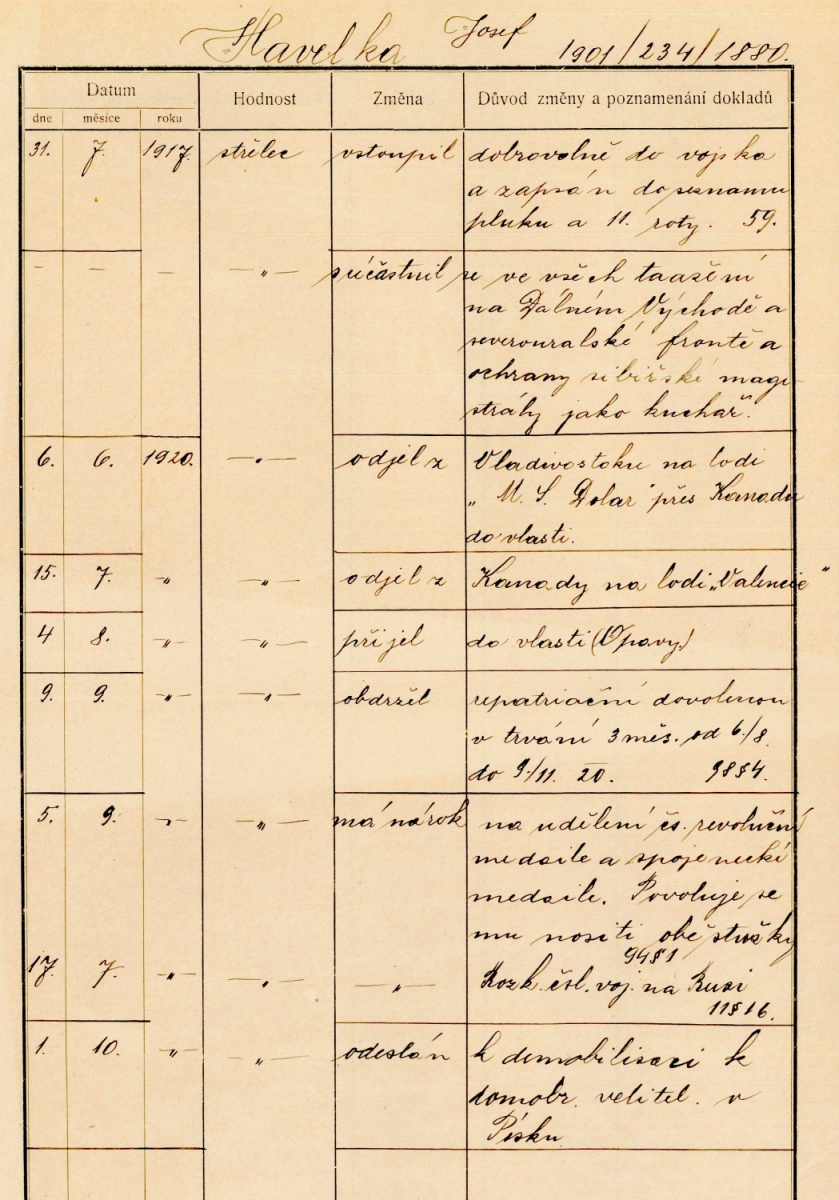 Havelka Josef 1901/234/1880.
Datum Hodnost Změna Důvod změny a poznamenání dokladů
dne měsíce roku
31. 7. 1917. střelec vstoupil dobrovolně do vojska
a zapsán do seznamu
pluku a 11. roty. 59.
- - - -„- súčastnil se ve všech taažení
na Dálném Východě a
severouralské frontě a
ochrany sibiřské magi-
strály jako kuchař.
6. 6. 1920. -„- odjel z Vladivostoku na lodi
„M. S. Dolar" přes Kanadu
do vlasti.
15. 7. -„- -„- odjel z Kanady na lodi „Valencie"
4 8. -„- -„- přijel do vlasti (Opavy)
9. 9. -„- -„- obdržel repatriační dovolenou
v trvání 3 měs. od 6./8.
do 9./11. 20. 98§4.
5. 9. -„- -„- má nárok na udělení čs. revoluční
medaile a spojenecké
medaile. Povoluje se
mu nositi obě stužky
94§1
17. 7. -„- -„- -„- Rozk. čsl. voj. na Rusi
11§16.
1. 10. -„- -„- odeslán k demobilisaci k
domobr. velitel. v
Písku